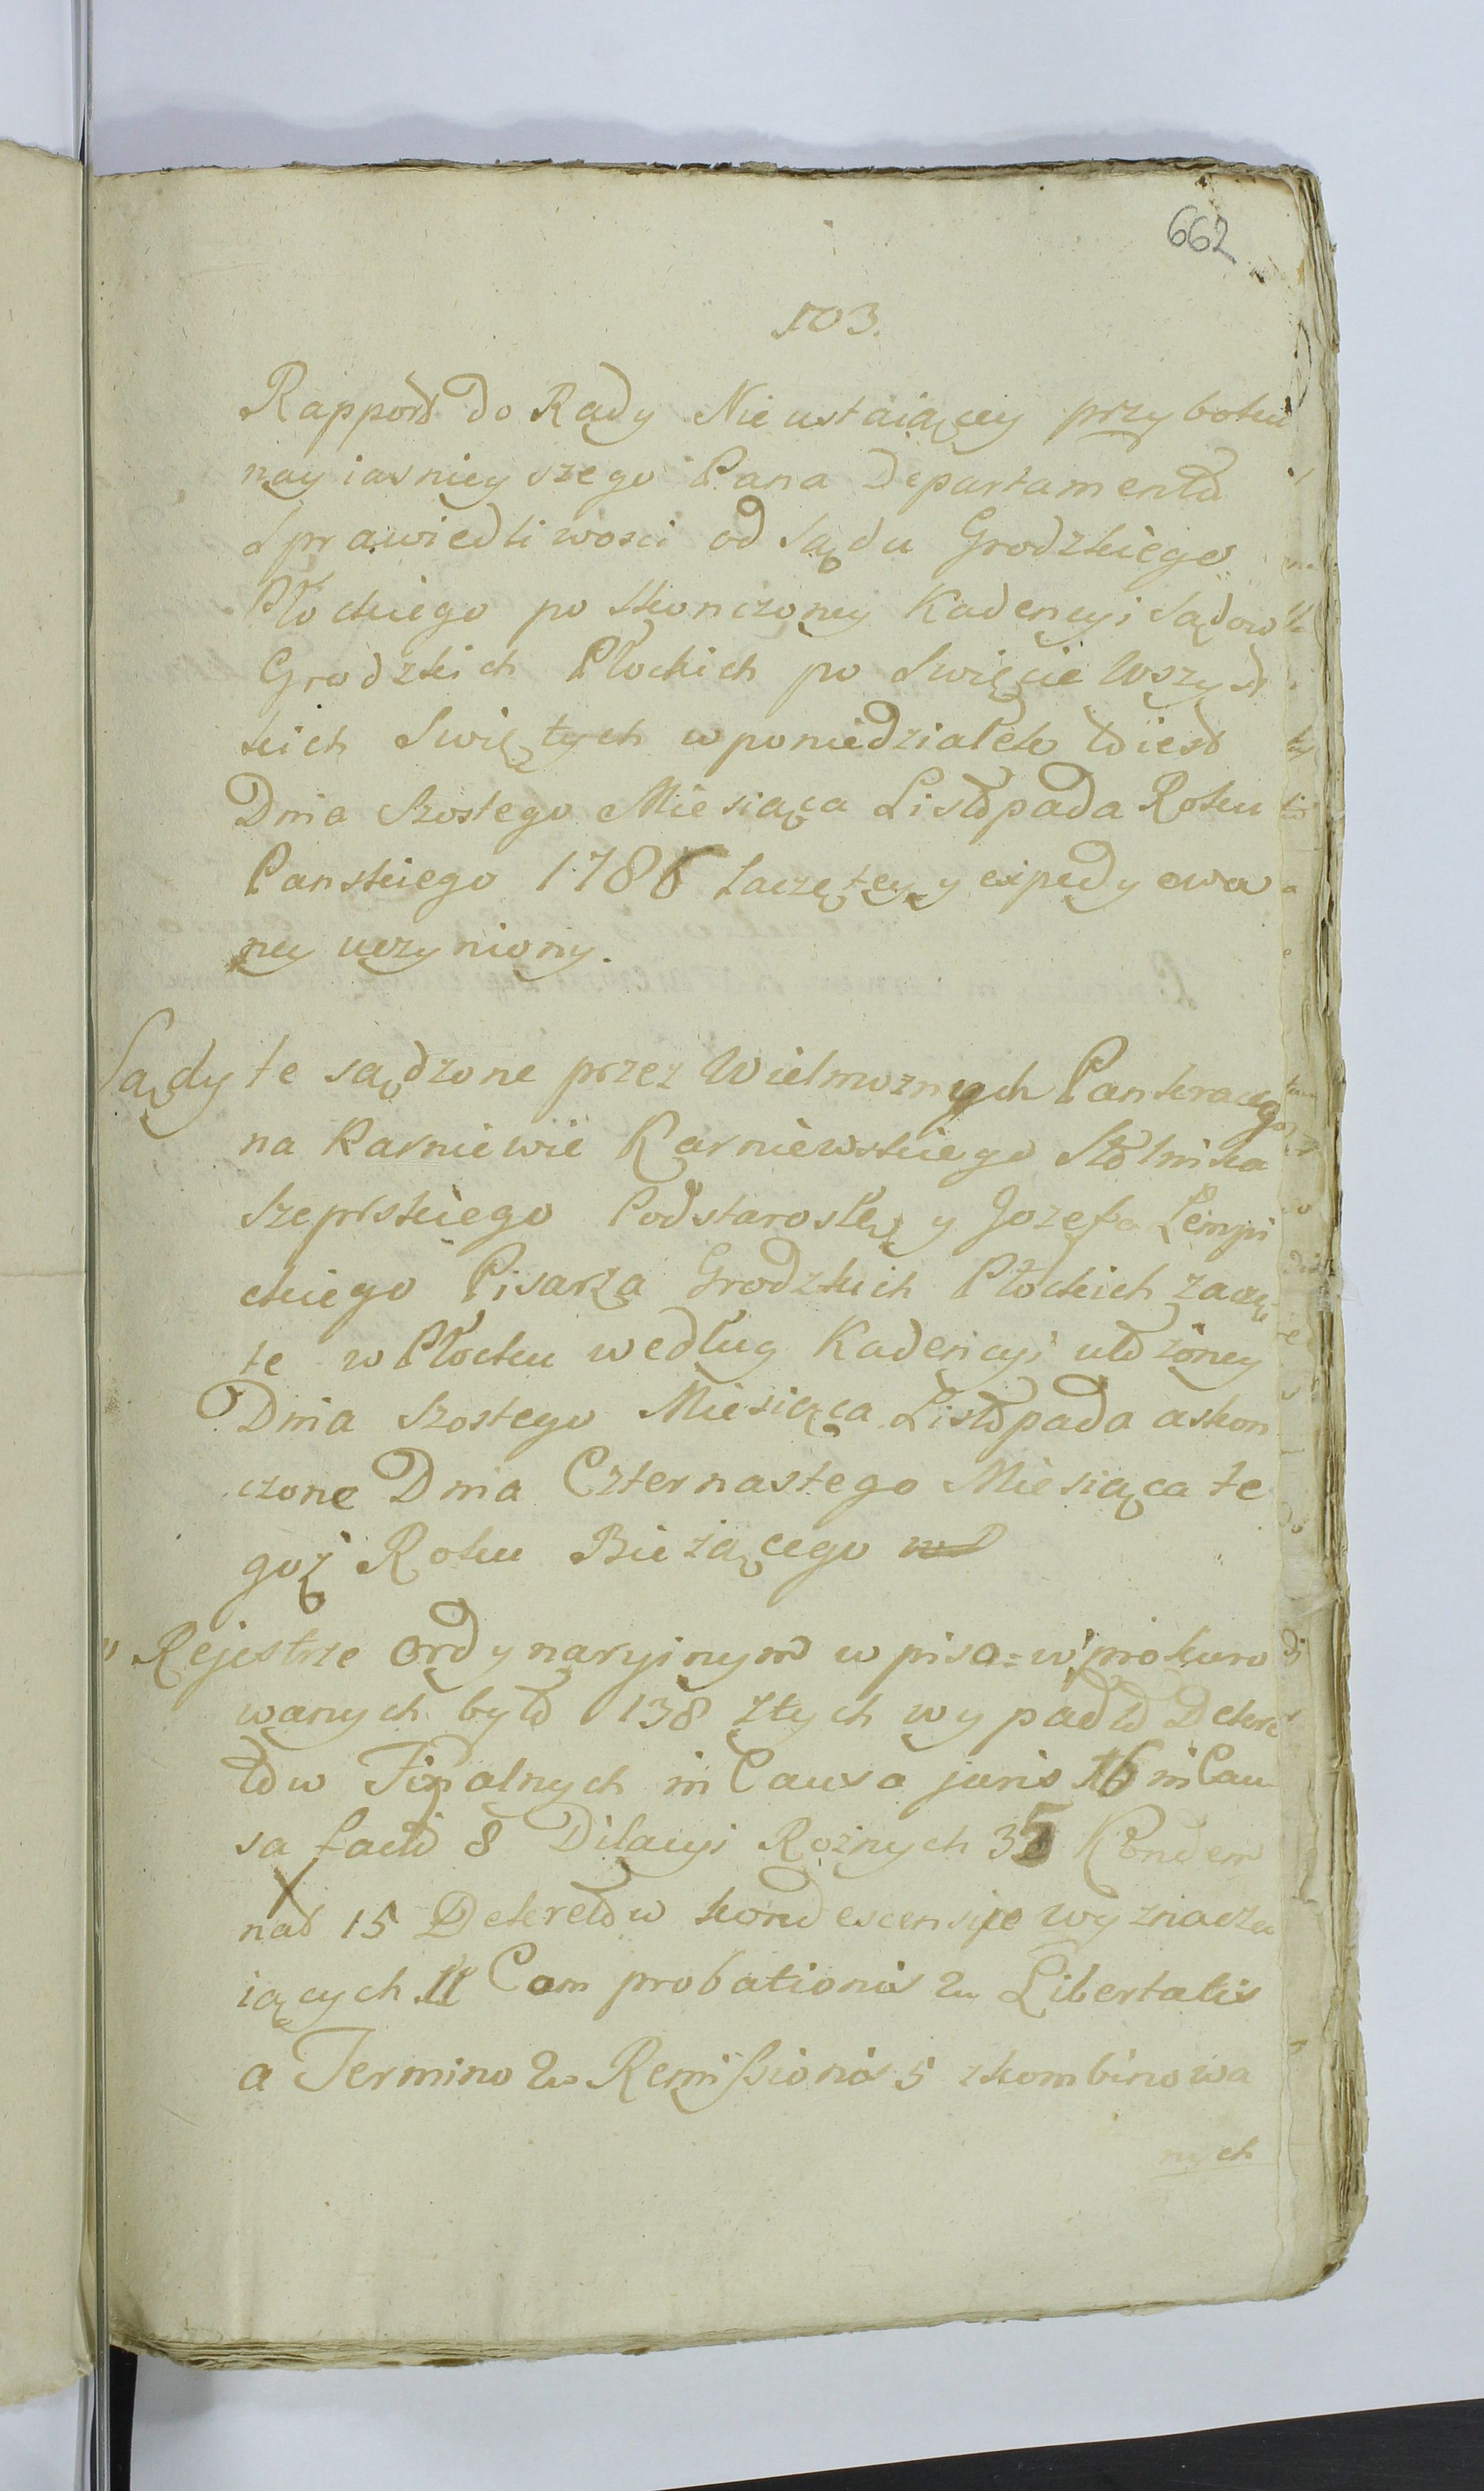 662
103.
Rapport do Rady Nieustaiącey przy boku
nayiasnieyszego Pana Departamentu
Sprawiedliwosci od Sądu Grodzkiego
Płockiego po skonczoney Kadencyi Sądow
Grodzkich Płockich po Swięcie Wszyst
kich Swiętych w poniedziałek to iest
Dnia Szostego Miesiąca Listopada Roku
Panskiego 1786 zaczętey y expedyowa
ney uczyniony.
Sądy te sądzone przez Wielmoznych Pankracego
na Karniewie Karniewskiego Stolnika
Szręskiego Podstarostę y Jozefa Lempi
ckiego Pisarza Grodzkich Płockich zaczę
te w Płocku według Kadencyi ułożoney
Dnia Szostego Miesiąca Listopada a skon
czone Dnia Czternastego Miesiąca te
goż Roku Bieżącego
Rejestrze Ordynaryinym wpisa= w prokuro
wanych było 138 z tych wypadło Dekre
tow Finalnych in Causa juris 16 in Cau
sa facti 8 Dilacyi Rożnych 35 Kondem
nat 15 Dekretow kondescensije wyznacza
iących 11 Com probationis 2 Libertatis
a Termino 2 Remissionis 5 zkombinowa
nych